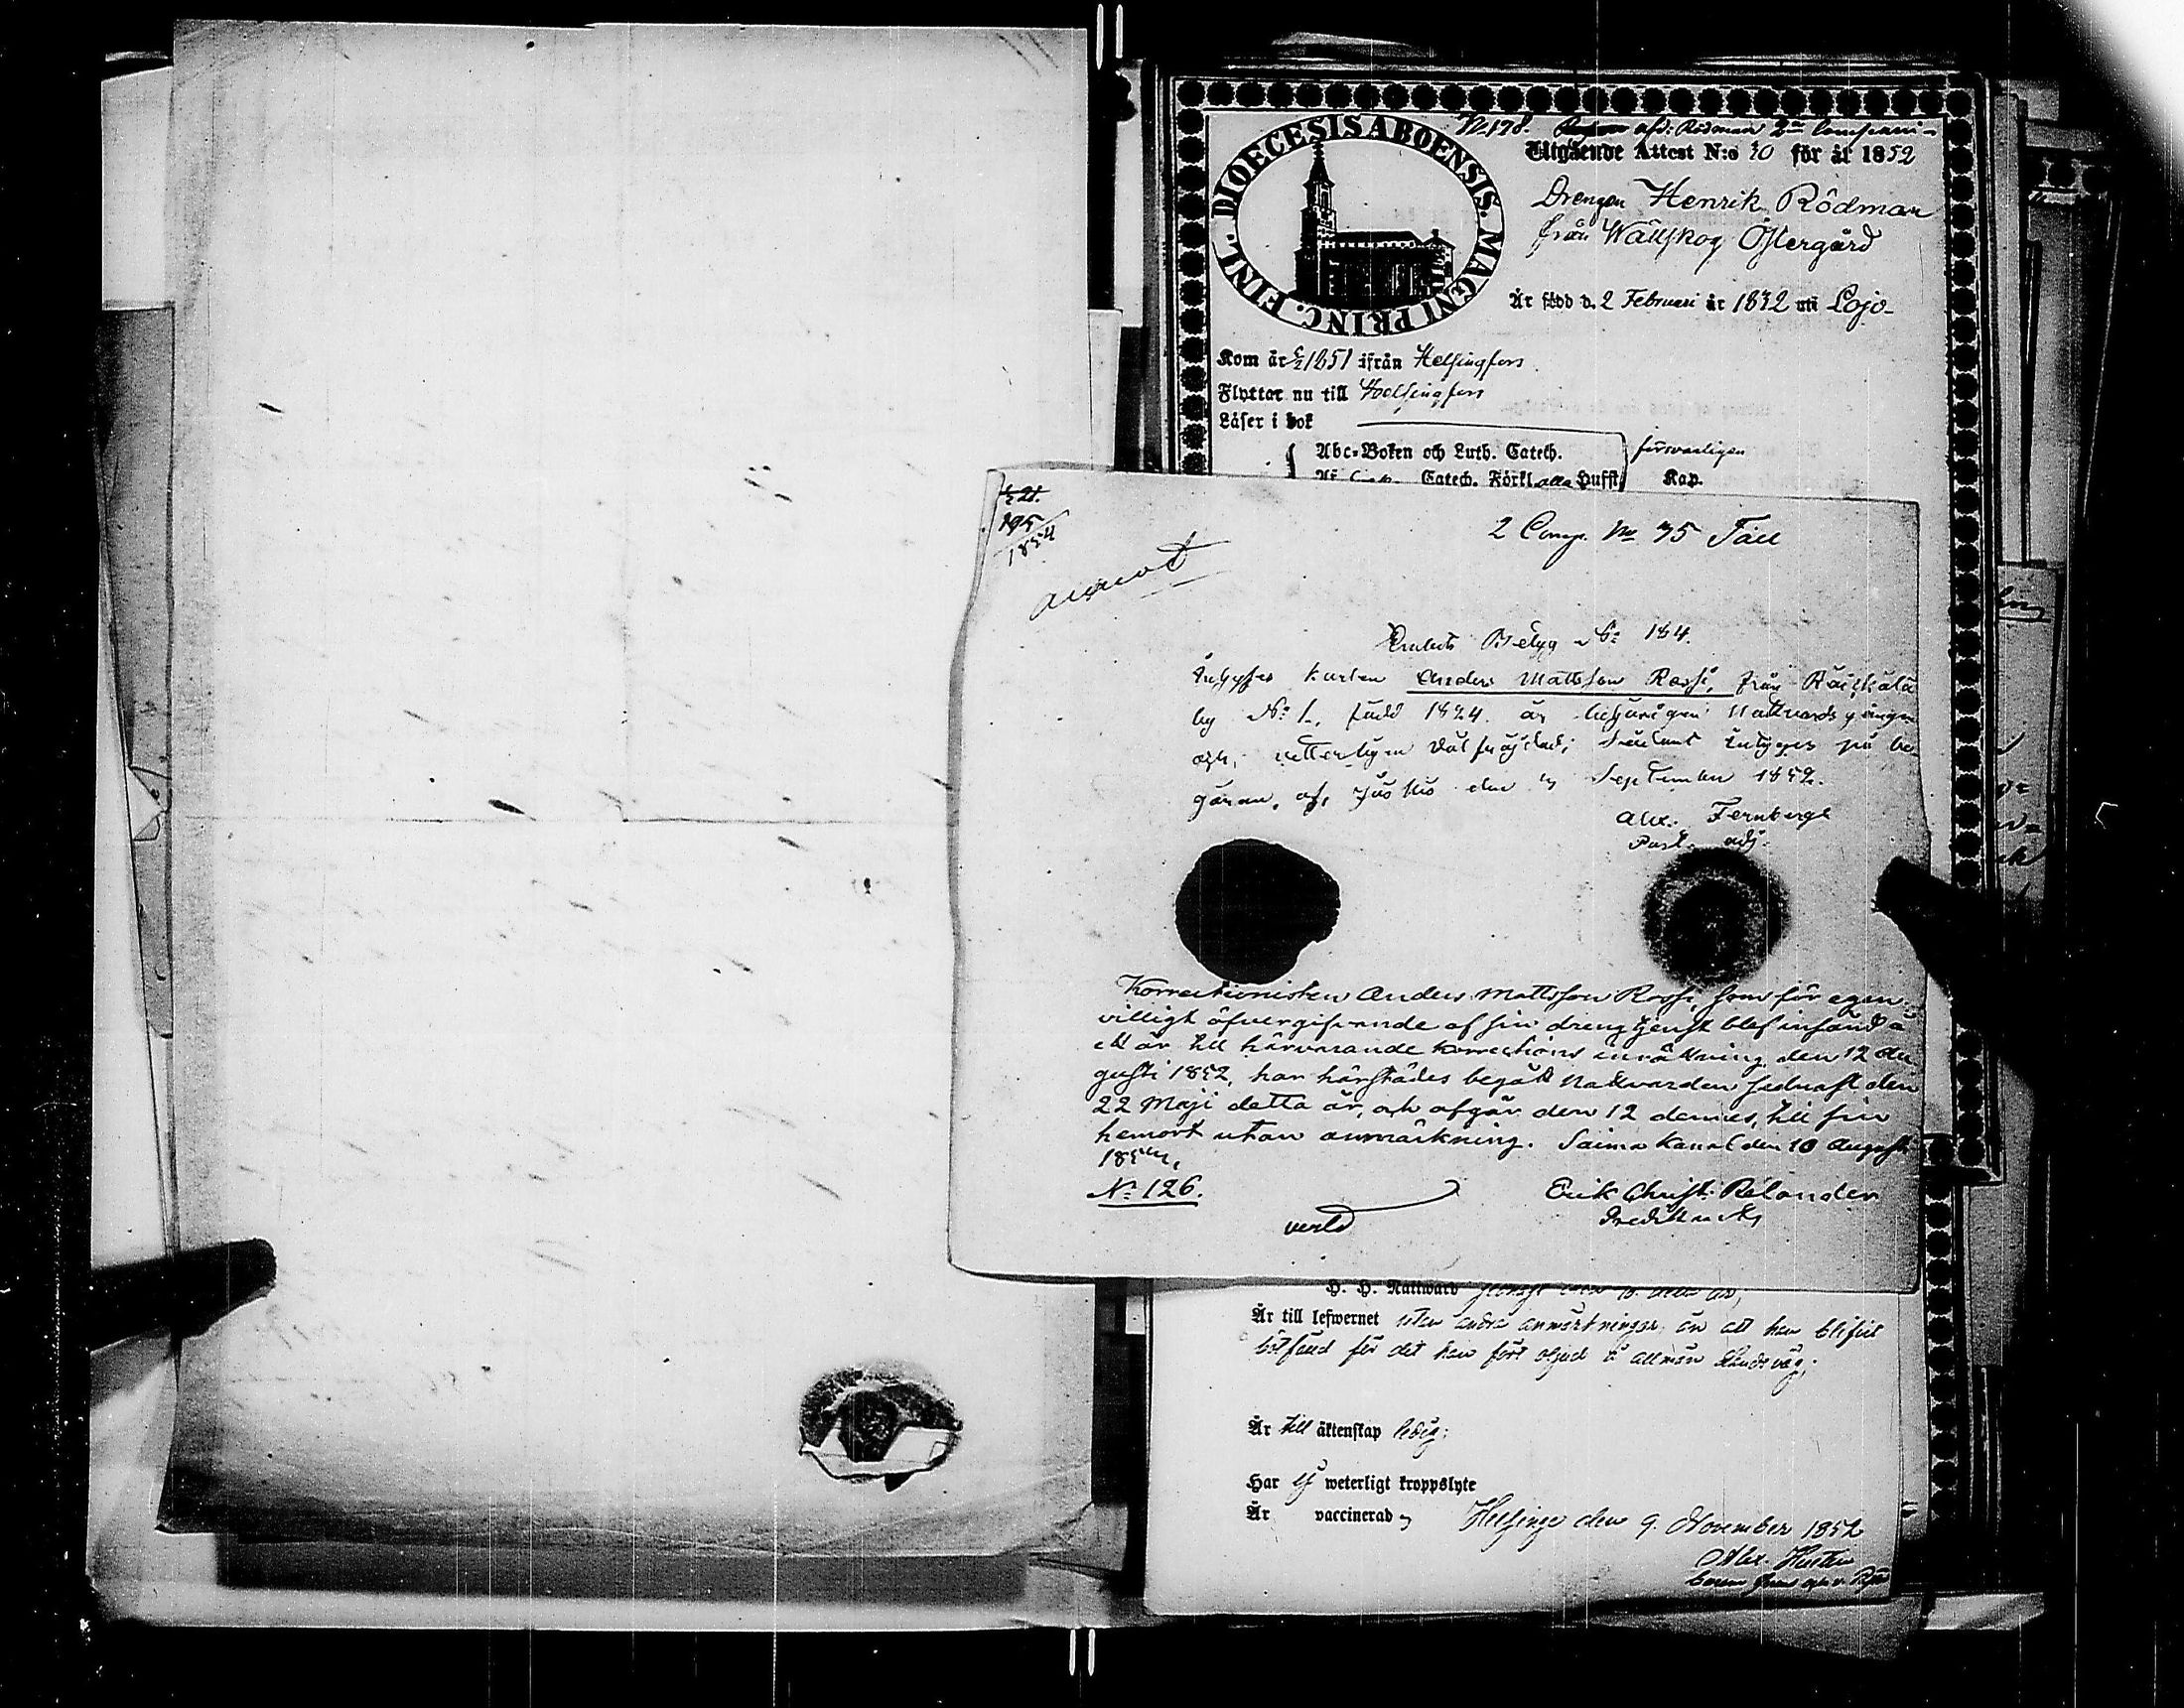 DIOECESIS ABOENSIS. MAGNI PRINC. FINL.
N:178. afd: Rödman 2:a Compani
Utgående Attest N:o 20 för år 1852
Drengen Henrik Rödman
från Wällskog Östergård
Är född d. 2 Februari år 1832 uti Lojo
Kom år 1851 ifrån Helsingfors
Flyttar nu till Helsingfors
Läser i bok
Abc-Boken och Luth. Catech. försvarligen
Catech. Förkl. alla Hufst. Kap.
195
1854
2 Comp. No 75 Täll
Embets Betyg No: 184.
karlen Anders Mattsson Rossi, från Räiskälä
by No: 1., född 1824. är Nattvards gången
och, välfräjdad; intygas på be-
gäran, af, den September 1852.
Alex. Fernberg
Past. adj.
Korrectionisten Anders Mattsson Rossi, som för egen-
villigt öfvergifvande af sin drengtjenst blef insänd å
ett år till härvarande korrections inrättning den 12 Au
gusti 1852, har härstädes begått Nattvarden sednast den
22 Maji detta år, och afgår den 12 dennes, till sin
hemort utan anmärkning. Saima Kanal den 10 Augusti
No: 126.
Erik Christ: Relander
H. H. Nattward
Är till lefwernet utan andra anmärkningar, än att han blifvit
bötfäld för det han fört oljud å allmän Landsväg;
Är till äktenskap ledig;
Har ej weterligt kroppslyte
Är vaccinerad
Helsinge den 9. November 1852
Alex.